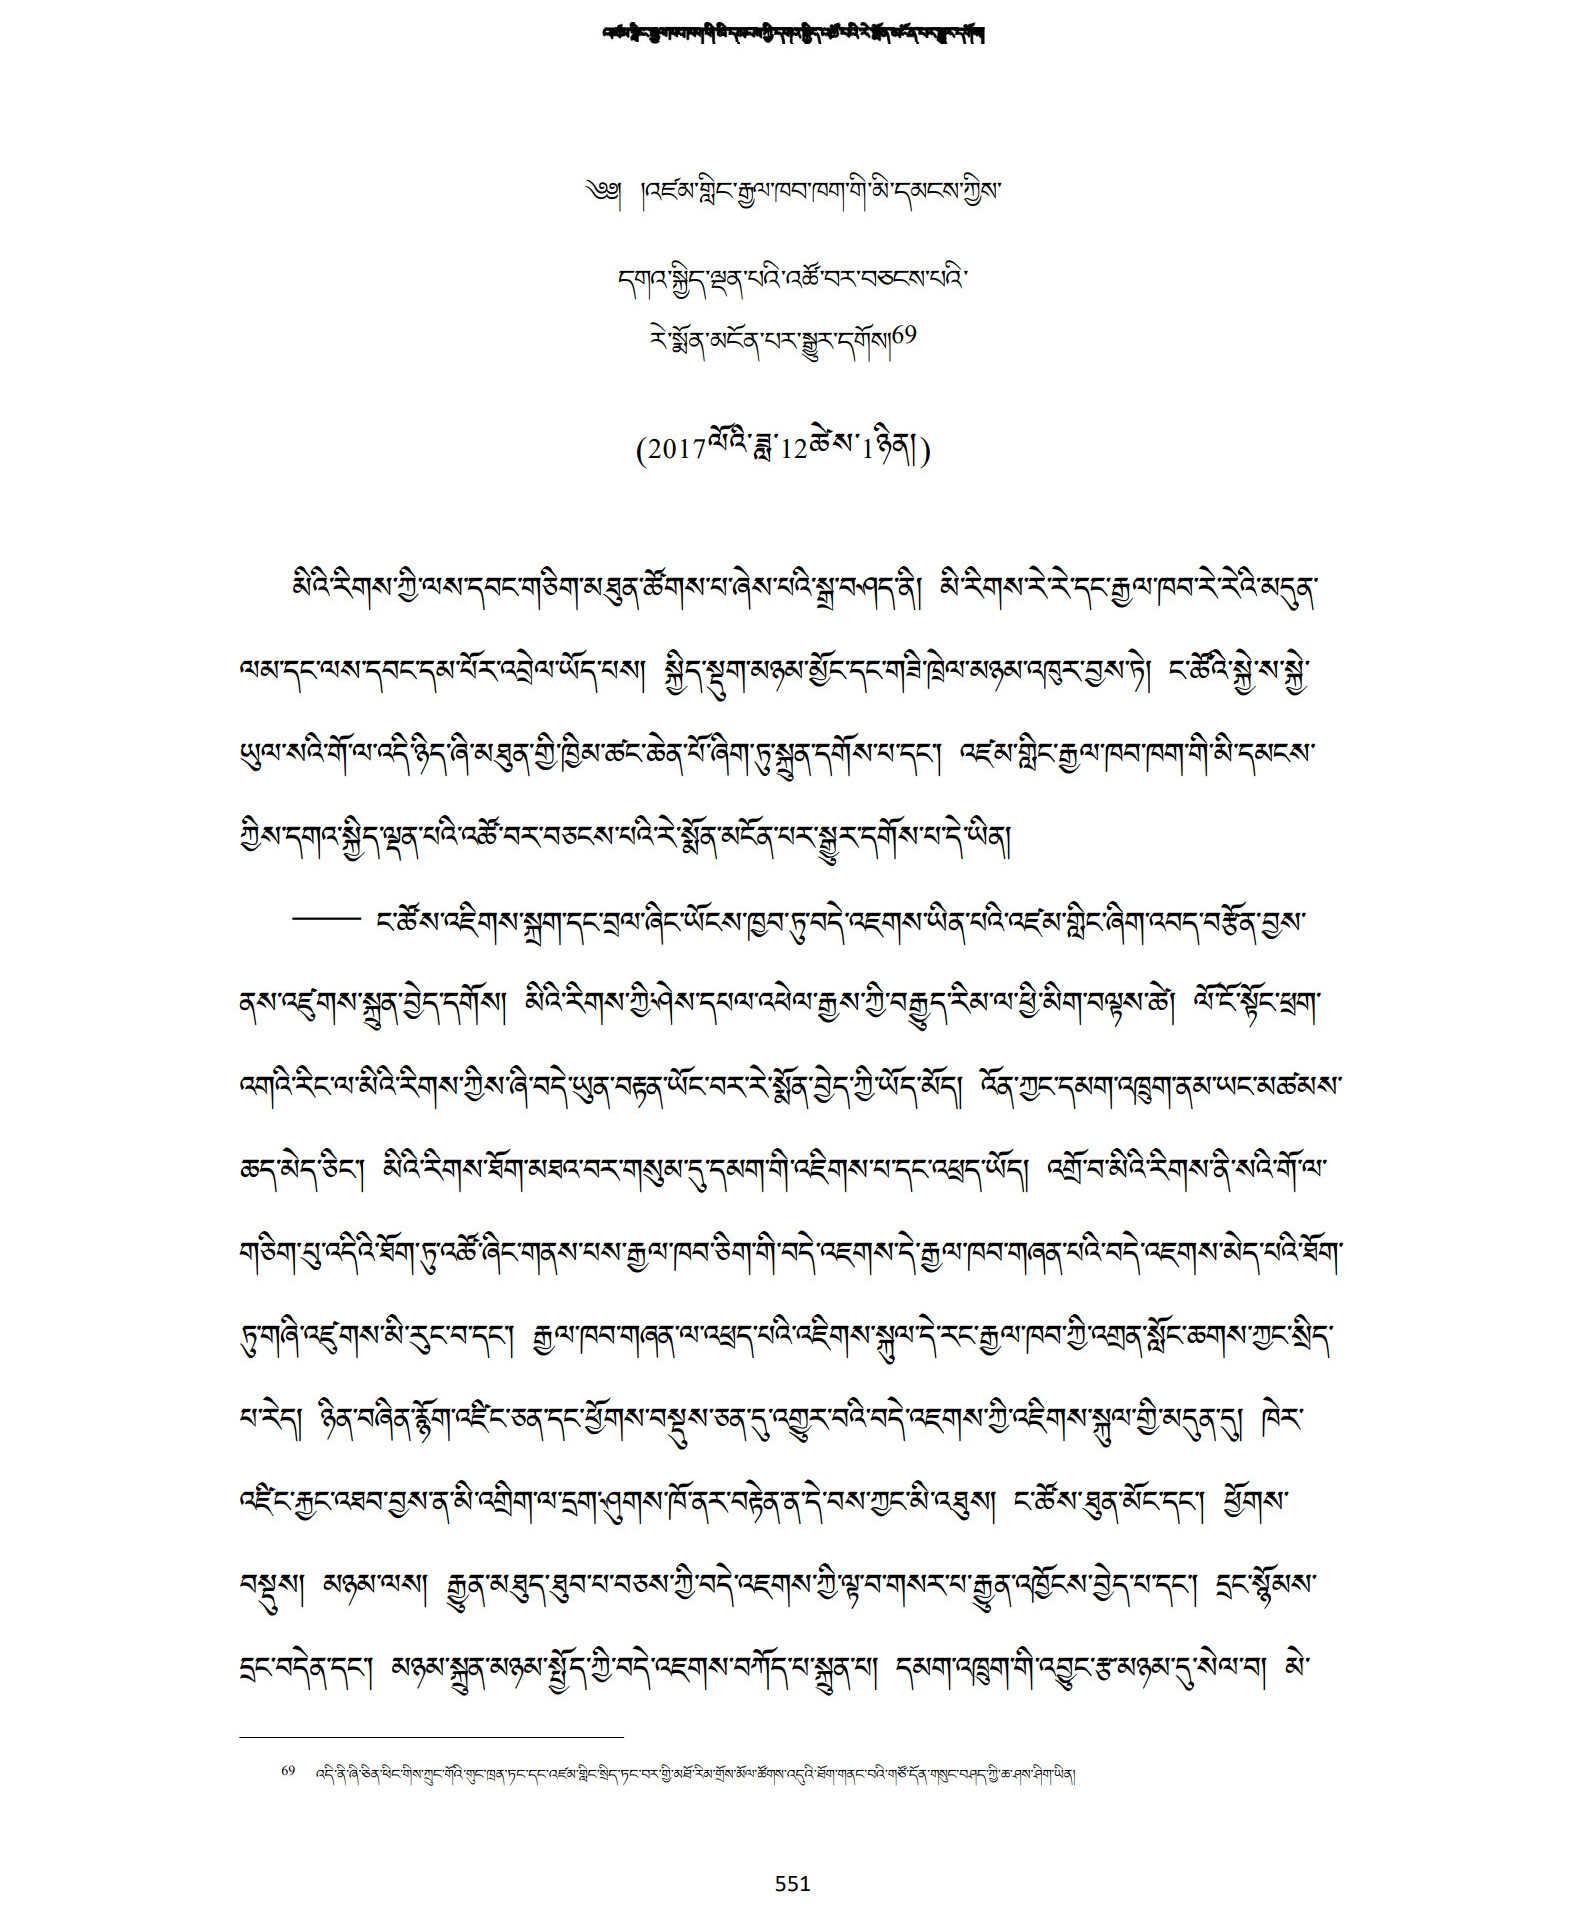 འཛམ་གླིང་རྒྱལ་ཁབ་ཁག་གི་མི་དམངས་ཀྱི་དགའ་སྐྱིད་འཚོ་བའི་རེ་སྨོན་མངོན་པར་སྒྱུར་དགོས།
༄༅།  །འཛམ་གླིང་རྒྱལ་ཁབ་ཁག་གི་མི་དམངས་ཀྱིས་
དགའ་སྐྱིད་ལྡན་པའི་འཚོ་བར་བཅངས་པའི་
རེ་སྨོན་མངོན་པར་སྒྱུར་དགོས།69
(2017ལོའི་ཟླ་12ཚེས་1ཉིན།)
མིའི་རིགས་ཀྱི་ལས་དབང་གཅིག་མཐུན་ཚོགས་པ་ཞེས་པའི་སྒྲ་བཤད་ནི།  མི་རིགས་རེ་རེ་དང་རྒྱལ་ཁབ་རེ་རེའི་མདུན་
ལམ་དང་ལས་དབང་དམ་པོར་འབྲེལ་ཡོད་པས།  སྐྱིད་སྡུག་མཉམ་མྱོང་དང་གཟི་ཁྲེལ་མཉམ་འཁུར་བྱས་ཏེ།  ང་ཚོའི་སྐྱེ་ས་སྐྱེ་
ཡུལ་སའི་གོ་ལ་འདི་ཉིད་ཞི་མཐུན་གྱི་ཁྱིམ་ཚང་ཆེན་པོ་ཞིག་ཏུ་སྐྲུན་དགོས་པ་དང་།  འཛམ་གླིང་རྒྱལ་ཁབ་ཁག་གི་མི་དམངས་
ཀྱིས་དགའ་སྐྱིད་ལྡན་པའི་འཚོ་བར་བཅངས་པའི་རེ་སྨོན་མངོན་པར་སྒྱུར་དགོས་པ་དེ་ཡིན།
—— ང་ཚོས་འཇིགས་སྐྲག་དང་བྲལ་ཞིང་ཡོངས་ཁྱབ་ཏུ་བདེ་འཇགས་ཡིན་པའི་འཛམ་གླིང་ཞིག་འབད་བརྩོན་བྱས་
ནས་འཛུགས་སྐྲུན་བྱེད་དགོས།  མིའི་རིགས་ཀྱི་ཤེས་དཔལ་འཕེལ་རྒྱས་ཀྱི་བརྒྱུད་རིམ་ལ་ཕྱི་མིག་བལྟས་ཚེ།  ལོ་ངོ་སྟོང་ཕྲག་
འགའི་རིང་ལ་མིའི་རིགས་ཀྱིས་ཞི་བདེ་ཡུན་བརྟན་ཡོང་བར་རེ་སྨོན་བྱེད་ཀྱི་ཡོད་མོད།  འོན་ཀྱང་དམག་འཁྲུག་ནམ་ཡང་མཚམས་
ཆད་མེད་ཅིང་།  མིའི་རིགས་ཐོག་མཐའ་བར་གསུམ་དུ་དམག་གི་འཇིགས་པ་དང་འཕྲད་ཡོད།  འགྲོ་བ་མིའི་རིགས་ནི་སའི་གོ་ལ་
གཅིག་པུ་འདིའི་ཐོག་ཏུ་འཚོ་ཞིང་གནས་པས་རྒྱལ་ཁབ་ཅིག་གི་བདེ་འཇགས་དེ་རྒྱལ་ཁབ་གཞན་པའི་བདེ་འཇགས་མེད་པའི་ཐོག་
ཏུ་གཞི་འཛུགས་མི་རུང་བ་དང་།  རྒྱལ་ཁབ་གཞན་ལ་འཕྲད་པའི་འཇིགས་སྐུལ་དེ་རང་རྒྱལ་ཁབ་ཀྱི་འགྲན་སློང་ཆགས་ཀྱང་སྲིད་
པ་རེད།  ཉིན་བཞིན་རྙོག་འཛིང་ཅན་དང་ཕྱོགས་བསྡུས་ཅན་དུ་འགྱུར་བའི་བདེ་འཇགས་ཀྱི་འཇིགས་སྐུལ་གྱི་མདུན་དུ།  ཁེར་
འཛིང་རྐྱང་འཐབ་བྱས་ན་མི་འགྲིག་ལ་དྲག་ཤུགས་ཁོ་ནར་བརྟེན་ན་དེ་བས་ཀྱང་མི་འཐུས།  ང་ཚོས་ཐུན་མོང་དང་།  ཕྱོགས་
བསྡུས།  མཉམ་ལས།  རྒྱུན་མཐུད་ཐུབ་པ་བཅས་ཀྱི་བདེ་འཇགས་ཀྱི་ལྟ་བ་གསར་པ་རྒྱུན་འཁྱོངས་བྱེད་པ་དང་།  དྲང་སྙོམས་
དྲང་བདེན་དང་།  མཉམ་སྐྲུན་མཉམ་སྤྱོད་ཀྱི་བདེ་འཇགས་བཀོད་པ་སྐྲུན་པ།  དམག་འཁྲུག་གི་འབྱུང་རྩ་མཉམ་དུ་སེལ་བ།  མེ་
69  འདི་ནི་ཞི་ཅིན་ཕིང་གིས་ཀྲུང་གོའི་གུང་ཁྲན་ཏང་དང་འཛམ་གླིང་སྲིད་ཏང་བར་གྱི་མཐོ་རིམ་གྲོས་མོལ་ཚོགས་འདུའི་ཐོག་གནང་བའི་གཙོ་དོན་གསུང་བཤད་ཀྱི་ཆ་ཤས་ཤིག་ཡིན།
551